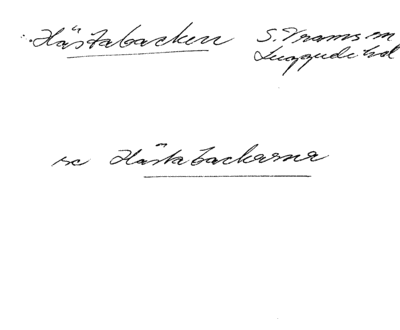 Hästabacken S. Vrams sn
Luggude hd
se Hästabackarna